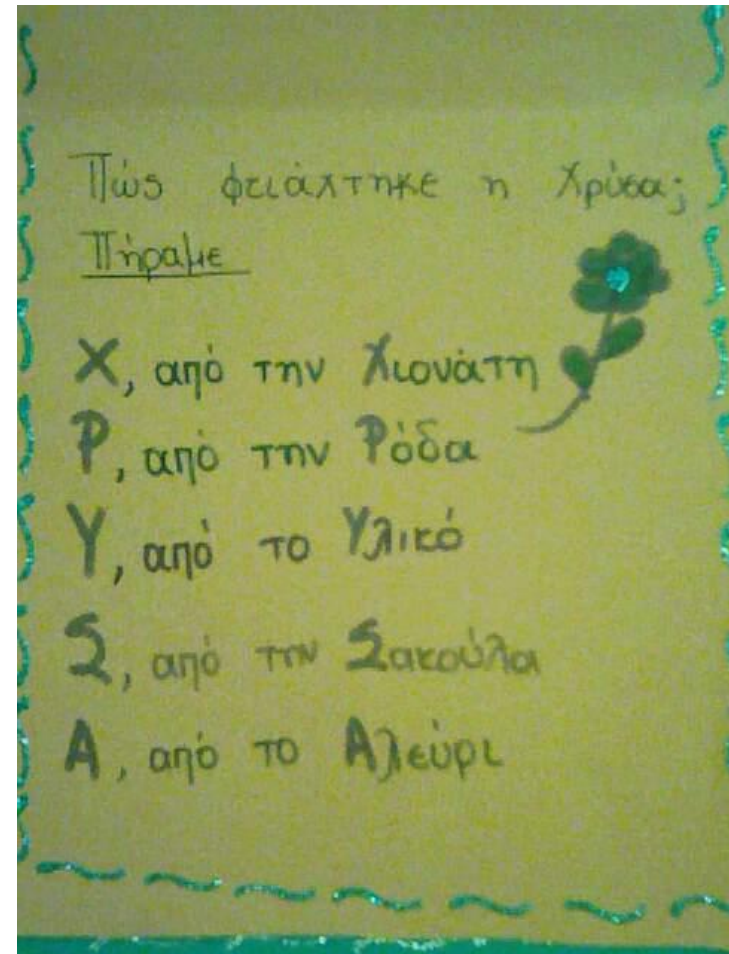 Πώς φτιάχτηκε η Χρύσα;
Πήραμε
Χ, από την Χιονάτη
Ρ, από την Ρόδα
Υ, από το Υλικό
Σ, από την Σακούλα
Α, από το Αλεύρι